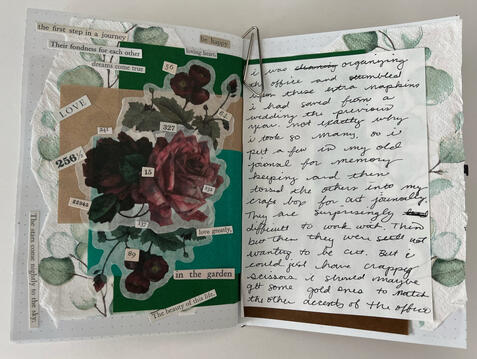 the first step in a journey
be happy
Their fondness for each other
loving heart,
dreams come true
36
LOVE
327
241
256½
15
22845
137
love greatly,
89
in the garden
The stars come nightly to the sky;
The beauty of this life,
i was cleaning organizing
the office and stumbled
upon these extra napkins
i had saved from a
wedding the previous
year. not exactly why
i took so many or i
put a few in my old
journal for memory
keeping and then
tossed the others into my
craft box for art journaling.
They are surprisingly
difficult to work with. Thin
but then they were not
wanting to be cut. But i
could just have crappy
scissors. i should maybe
get some gold ones to match
the other decents of the office